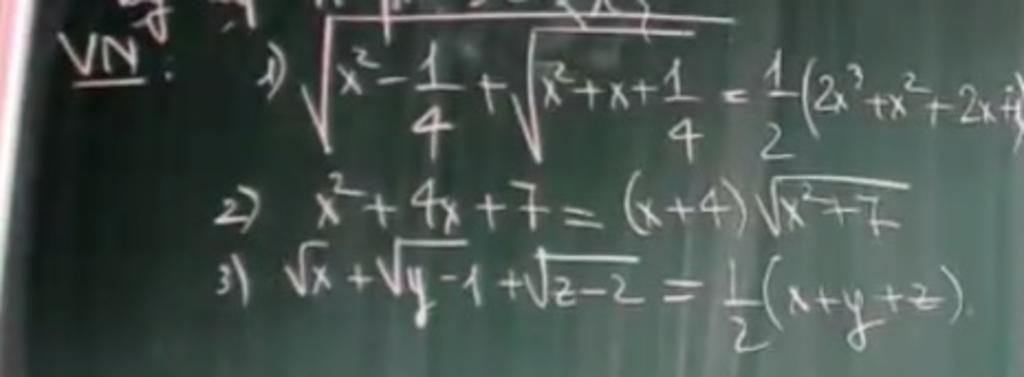 VN: 1) √(x² - 1/4 + √(x² + x + 1/4)) = 1/2 (2x³ + x² + 2x + 1)
2) x² + 4x + 7 = (x + 4)√(x² + 7)
3) √x + √(y - 1) + √(z - 2) = 1/2 (x + y + z).